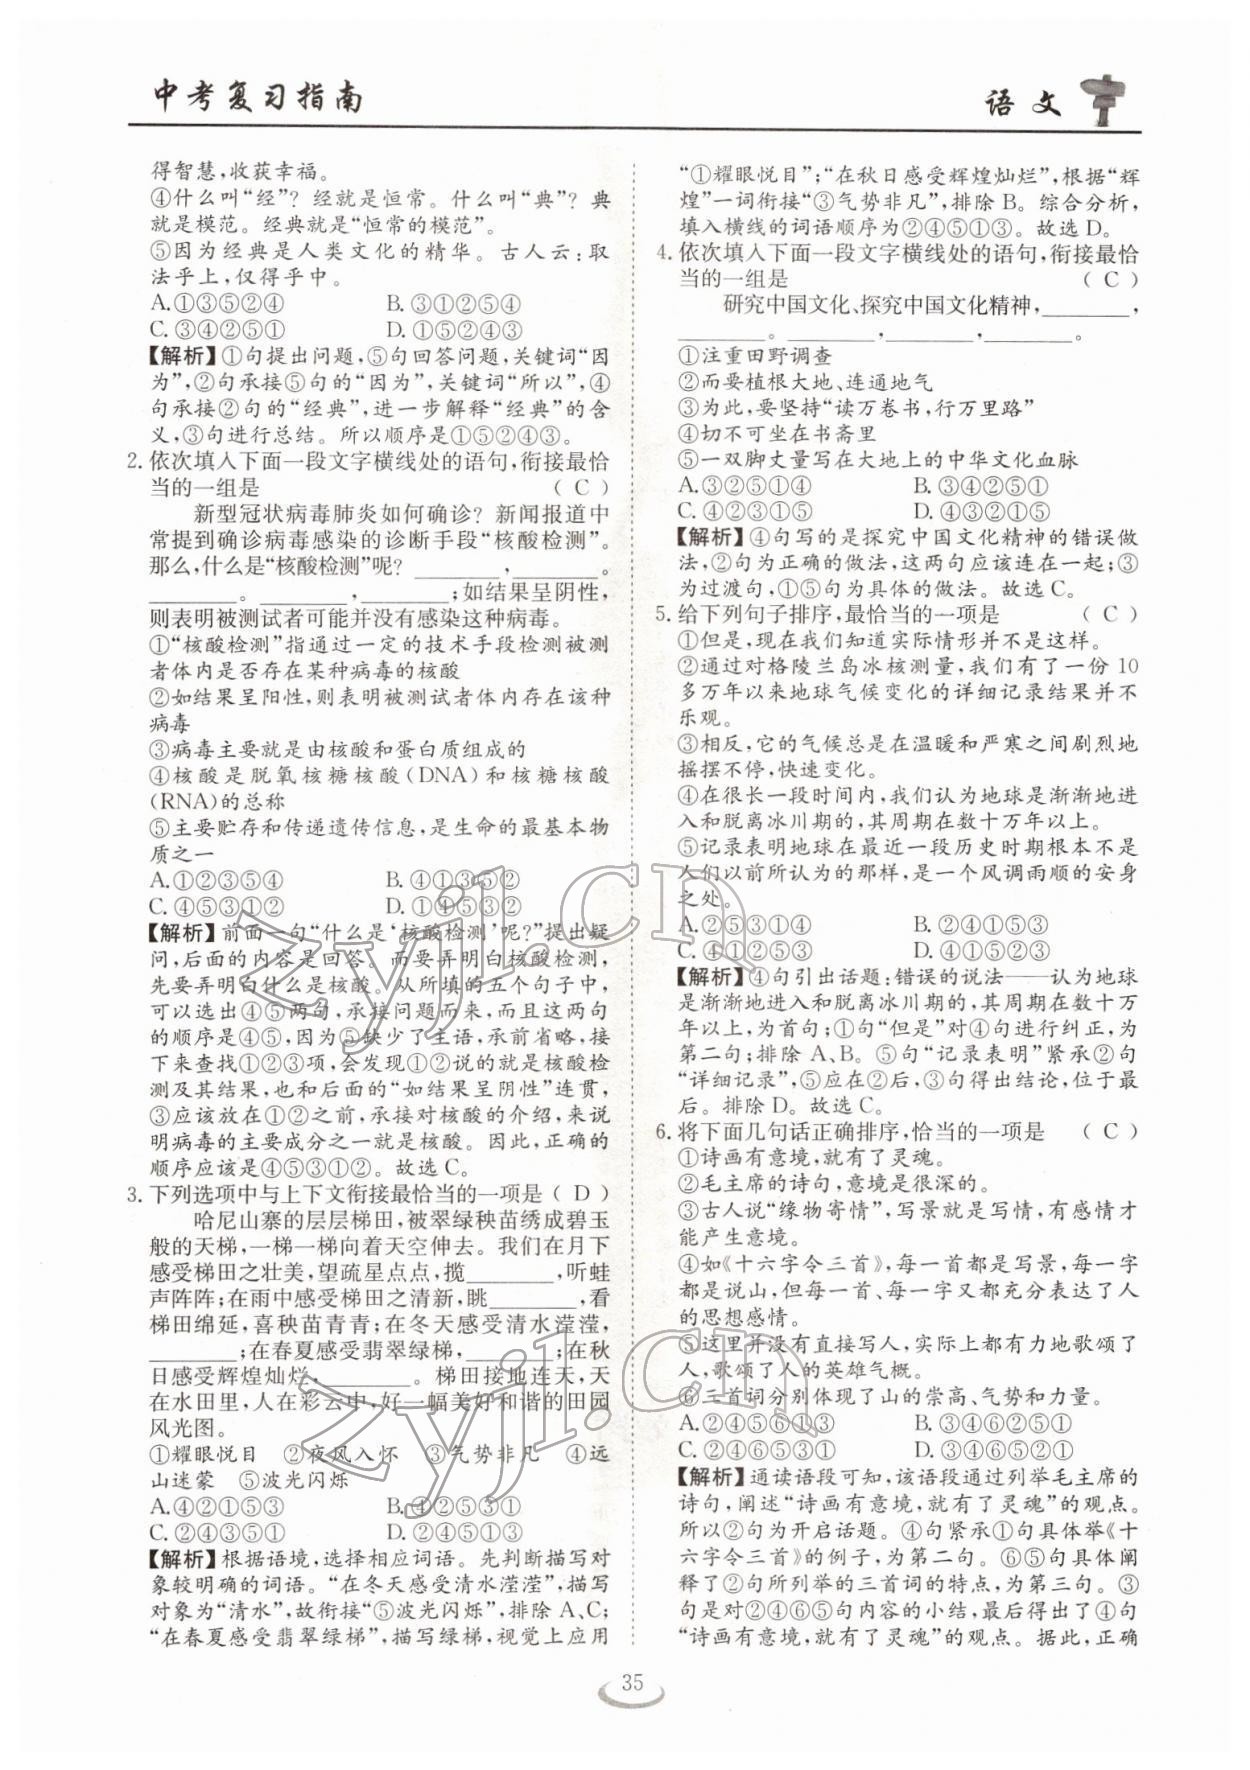 中考复习指南
语文
得智慧,收获幸福。
④什么叫“经”? 经就是恒常。什么叫“典”? 典
就是模范。经典就是“恒常的模范”。
⑤因为经典是人类文化的精华。古人云:取
法乎上,仅得乎中。
A.①③⑤②④ B. ③①②⑤④
C. ③④②⑤① D. ①⑤②④③
【解析】①句提出问题,⑤句回答问题,关键词“因
为”,②句承接⑤句的“因为”,关键词“所以”,④
句承接②句的“经典”,进一步解释“经典”的含
义,③句进行总结。所以顺序是①⑤②④③。
2. 依次填入下面一段文字横线处的语句,衔接最恰
当的一组是 ( C )
新型冠状病毒肺炎如何确诊? 新闻报道中
常提到确诊病毒感染的诊断手段“核酸检测”。
那么,什么是“核酸检测”呢? ________,________。
________。________,________;如结果呈阴性,
则表明被测试者可能并没有感染这种病毒。
①“核酸检测”指通过一定的技术手段检测被测
者体内是否存在某种病毒的核酸
②如结果呈阳性,则表明被测试者体内存在该种
病毒
③病毒主要就是由核酸和蛋白质组成的
④核酸是脱氧核糖核酸(DNA)和核糖核酸
(RNA)的总称
⑤主要贮存和传递遗传信息,是生命的最基本物
质之一
A.①②③⑤④ B. ④①③⑤②
C. ④⑤③①② D. ①④⑤③②
【解析】前面一句“什么是‘核酸检测’呢?”提出疑
问,后面的内容是回答。而要弄明白核酸检测,
先要弄明白什么是核酸。从所填的五个句子中,
可以选出④⑤两句,承接问题而来,而且这两句
的顺序是④⑤,因为⑤缺少了主语,承前省略,接
下来查找①②③项,会发现①②说的就是核酸检
测及其结果,也和后面的“如结果呈阴性”连贯,
③应该放在①②之前,承接对核酸的介绍,来说
明病毒的主要成分之一就是核酸。因此,正确的
顺序应该是④⑤③①②。故选 C。
3. 下列选项中与上下文衔接最恰当的一项是 ( D )
哈尼山寨的层层梯田,被翠绿秧苗绣成碧玉
般的天梯,一梯一梯向着天空伸去。我们在月下
感受梯田之壮美,望疏星点点,揽________,听蛙
声阵阵;在雨中感受梯田之清新,眺________,看
梯田绵延,喜秧苗青青;在冬天感受清水滢滢,
________;在春夏感受翡翠绿梯,________;在秋
日感受辉煌灿烂,________。梯田接地连天,天
在水田里,人在彩云中,好一幅美好和谐的田园
风光图。
①耀眼悦目 ②夜风入怀 ③气势非凡 ④远
山迷蒙 ⑤波光闪烁
A.④②①⑤③ B. ④②⑤③①
C. ②④③⑤① D. ②④⑤①③
【解析】根据语境,选择相应词语。先判断描写对
象较明确的词语。“在冬天感受清水滢滢”,描写
对象为“清水”,故衔接“⑤波光闪烁”,排除 A、C;
“在春夏感受翡翠绿梯”,描写绿梯,视觉上应用
“①耀眼悦目”;“在秋日感受辉煌灿烂”,根据“辉
煌”一词衔接“③气势非凡”,排除 B。综合分析,
填入横线的词语顺序为②④⑤①③。故选 D。
4. 依次填入下面一段文字横线处的语句,衔接最恰
当的一组是 ( C )
研究中国文化、探究中国文化精神,________,
________。________,________,________。
①注重田野调查
②而要植根大地、连通地气
③为此,要坚持“读万卷书,行万里路”
④切不可坐在书斋里
⑤一双脚丈量写在大地上的中华文化血脉
A.③②⑤①④ B. ③④②⑤①
C. ④②③①⑤ D. ④③②①⑤
【解析】④句写的是探究中国文化精神的错误做
法,②句为正确的做法,这两句应该连在一起;③
为过渡句,①⑤句为具体的做法。故选 C。
5. 给下列句子排序,最恰当的一项是 ( C )
①但是,现在我们知道实际情形并不是这样。
②通过对格陵兰岛冰核测量,我们有了一份 10
多万年以来地球气候变化的详细记录结果并不
乐观。
③相反,它的气候总是在温暖和严寒之间剧烈地
摇摆不停,快速变化。
④在很长一段时间内,我们认为地球是渐渐地进
入和脱离冰川期的,其周期在数十万年以上。
⑤记录表明地球在最近一段历史时期根本不是
人们以前所认为的那样,是一个风调雨顺的安身
之处。
A.②⑤③①④ B. ②④①⑤③
C. ④①②⑤③ D. ④①⑤②③
【解析】④句引出话题:错误的说法——认为地球
是渐渐地进入和脱离冰川期的,其周期在数十万
年以上,为首句;①句“但是”对④句进行纠正,为
第二句;排除 A、B。⑤句“记录表明”紧承②句
“详细记录”,⑤应在②后,③句得出结论,位于最
后。排除 D。故选 C。
6. 将下面几句话正确排序,恰当的一项是 ( C )
①诗画有意境,就有了灵魂。
②毛主席的诗句,意境是很深的。
③古人说“缘物寄情”,写景就是写情,有感情才
能产生意境。
④如《十六字令三首》,每一首都是写景,每一字
都是说山,但每一首、每一字又都充分表达了人
的思想感情。
⑤这里并没有直接写人,实际上都有力地歌颂了
人,歌颂了人的英雄气概。
⑥三首词分别体现了山的崇高、气势和力量。
A.②④⑤⑥①③ B. ③④⑥②⑤①
C. ②④⑥⑤③① D. ③②④⑥⑤①
【解析】通读语段可知,该语段通过列举毛主席的
诗句,阐述“诗画有意境,就有了灵魂”的观点。
所以②句为开启话题。④句紧承①句具体举《十
六字令三首》的例子,为第二句。⑥⑤句具体阐
释了②句所列举的三首词的特点,为第三句。③
句是对②④⑥⑤句内容的小结,最后得出了④句
“诗画有意境,就有了灵魂”的观点。据此,正确
35
zyjl.cn
zyjl.cn